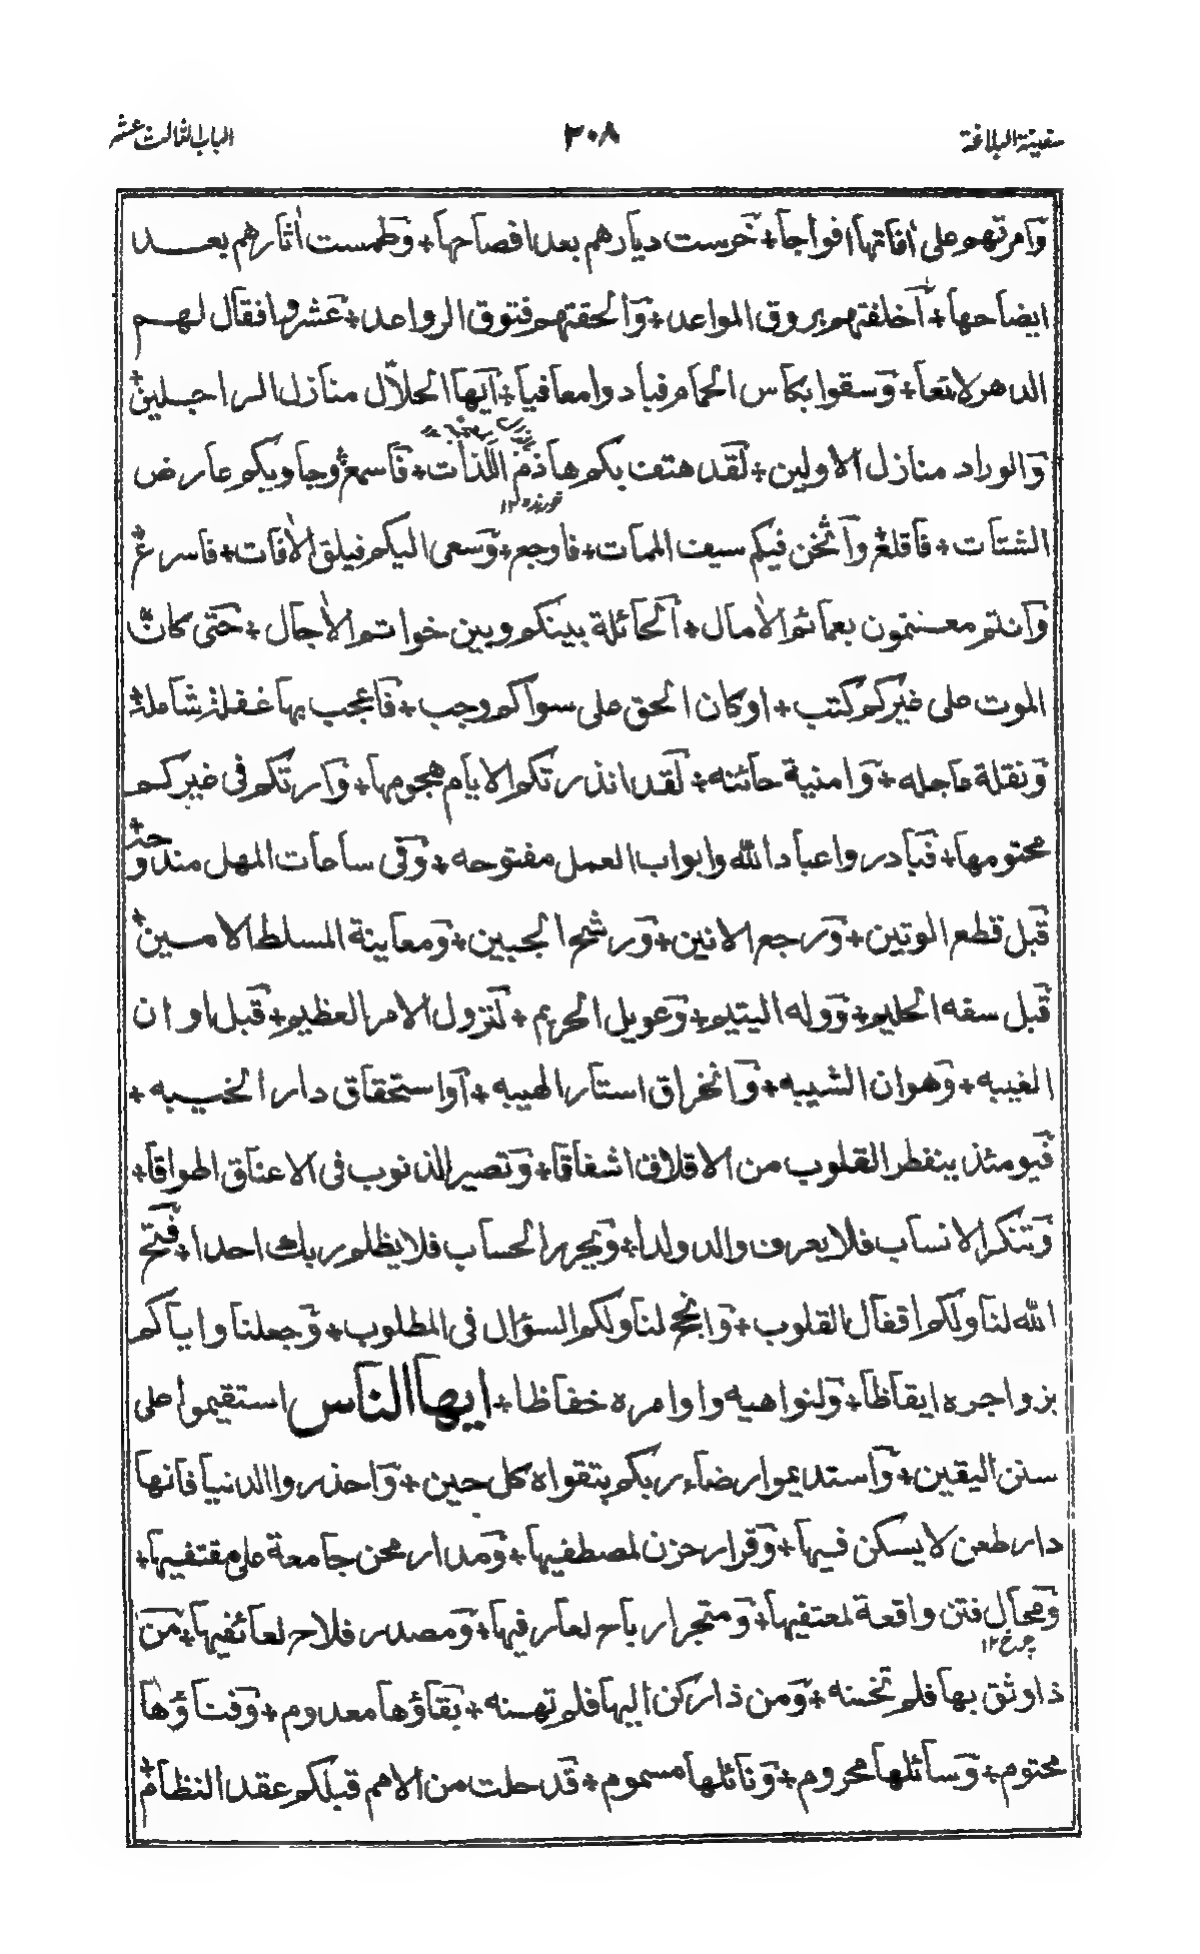 سفينة البلاغة ٣٠٨ الباب الثالث عشر
وامرتهم على افاتها افواجا + خرست ديارهم بعد افصاحها + وطمست اثارهم بعد
ايضاحها + اخلفتهم بروق المواعد + والحقتهم فتوق الرواعد + عشروا فقال لهم
الدهر لا لعا + وسقوا بكاس الحمام فبادوا معا فيا + ايها الحلال منازل الراحلين +
والوراد منازل الاولين + لقد هتف بكم هاذم اللذات + فاسمع وجاوبكم عارض
الشتات + فاقلع واثخن فيكم سيف الممات + فاوجع + وسعى اليكم فيلق الافات + فاسرع +
وانتم معتمون بعمائم الامال + الحائلة بينكم وبين خواتم الاجال + حتى كان
الموت على غيركم كتب + او كان الحق على سواكم وجب + فاعجب بها غفلة شاملة +
ونقلة عاجله + وامنية حائنه + لقد انذرتكم الايام هجومها + وارتكم في غيركم
محتومها + فبادروا عباد الله وابواب العمل مفتوحه + وفي ساحات المهل مندوحة +
قبل قطع الوتين + ورجع الانين + ورشح الجبين + ومعاينة المسلط الامين +
قبل سفه الحليم + ووله اليتيم + وعويل الحريم + لنزول الامر العظيم + قبل اوان
الغيبه + وهوان الشيبه + وانخراق استار الهيبه + او استحقاق دار الخيبه +
فيومئذ ينفطر القلوب من الاقلاق اشفاقا + وتصير الذنوب في الاعناق اطواقا +
وتنكر الانساب فلا يعرف والد ولدا + ويحرر الحساب فلا يظلم ربك احدا + فتح
الله لنا ولكم اقفال القلوب + وانجح لنا ولكم السؤال في المطلوب + وجعلنا واياكم
بزواجره ايقاظا + ولنواهيه واوامره حفاظا + ايها الناس استقيموا على
سنن اليقين + واستديموا رضاء ربكم بتقواه كل حين + واحذروا الدنيا فانها
دار طعن لا يسكن فيها + وقرار حزن لمصطفيها + ومدار محن جامعة على مقتفيها +
ومجال فتن واقعة لمعتفيها + ومتجر ارباح لعارفيها + ومصدر فلاح لعائفيها + من
ذا وثق بها فلم تخنه + ومن ذا ركن اليها فلم تهنه + بقاؤها معدوم + وفناؤها
محتوم + وسائلها محروم + ونائلها مسموم + قد حلت من الامم قبلكم عقد النظام +